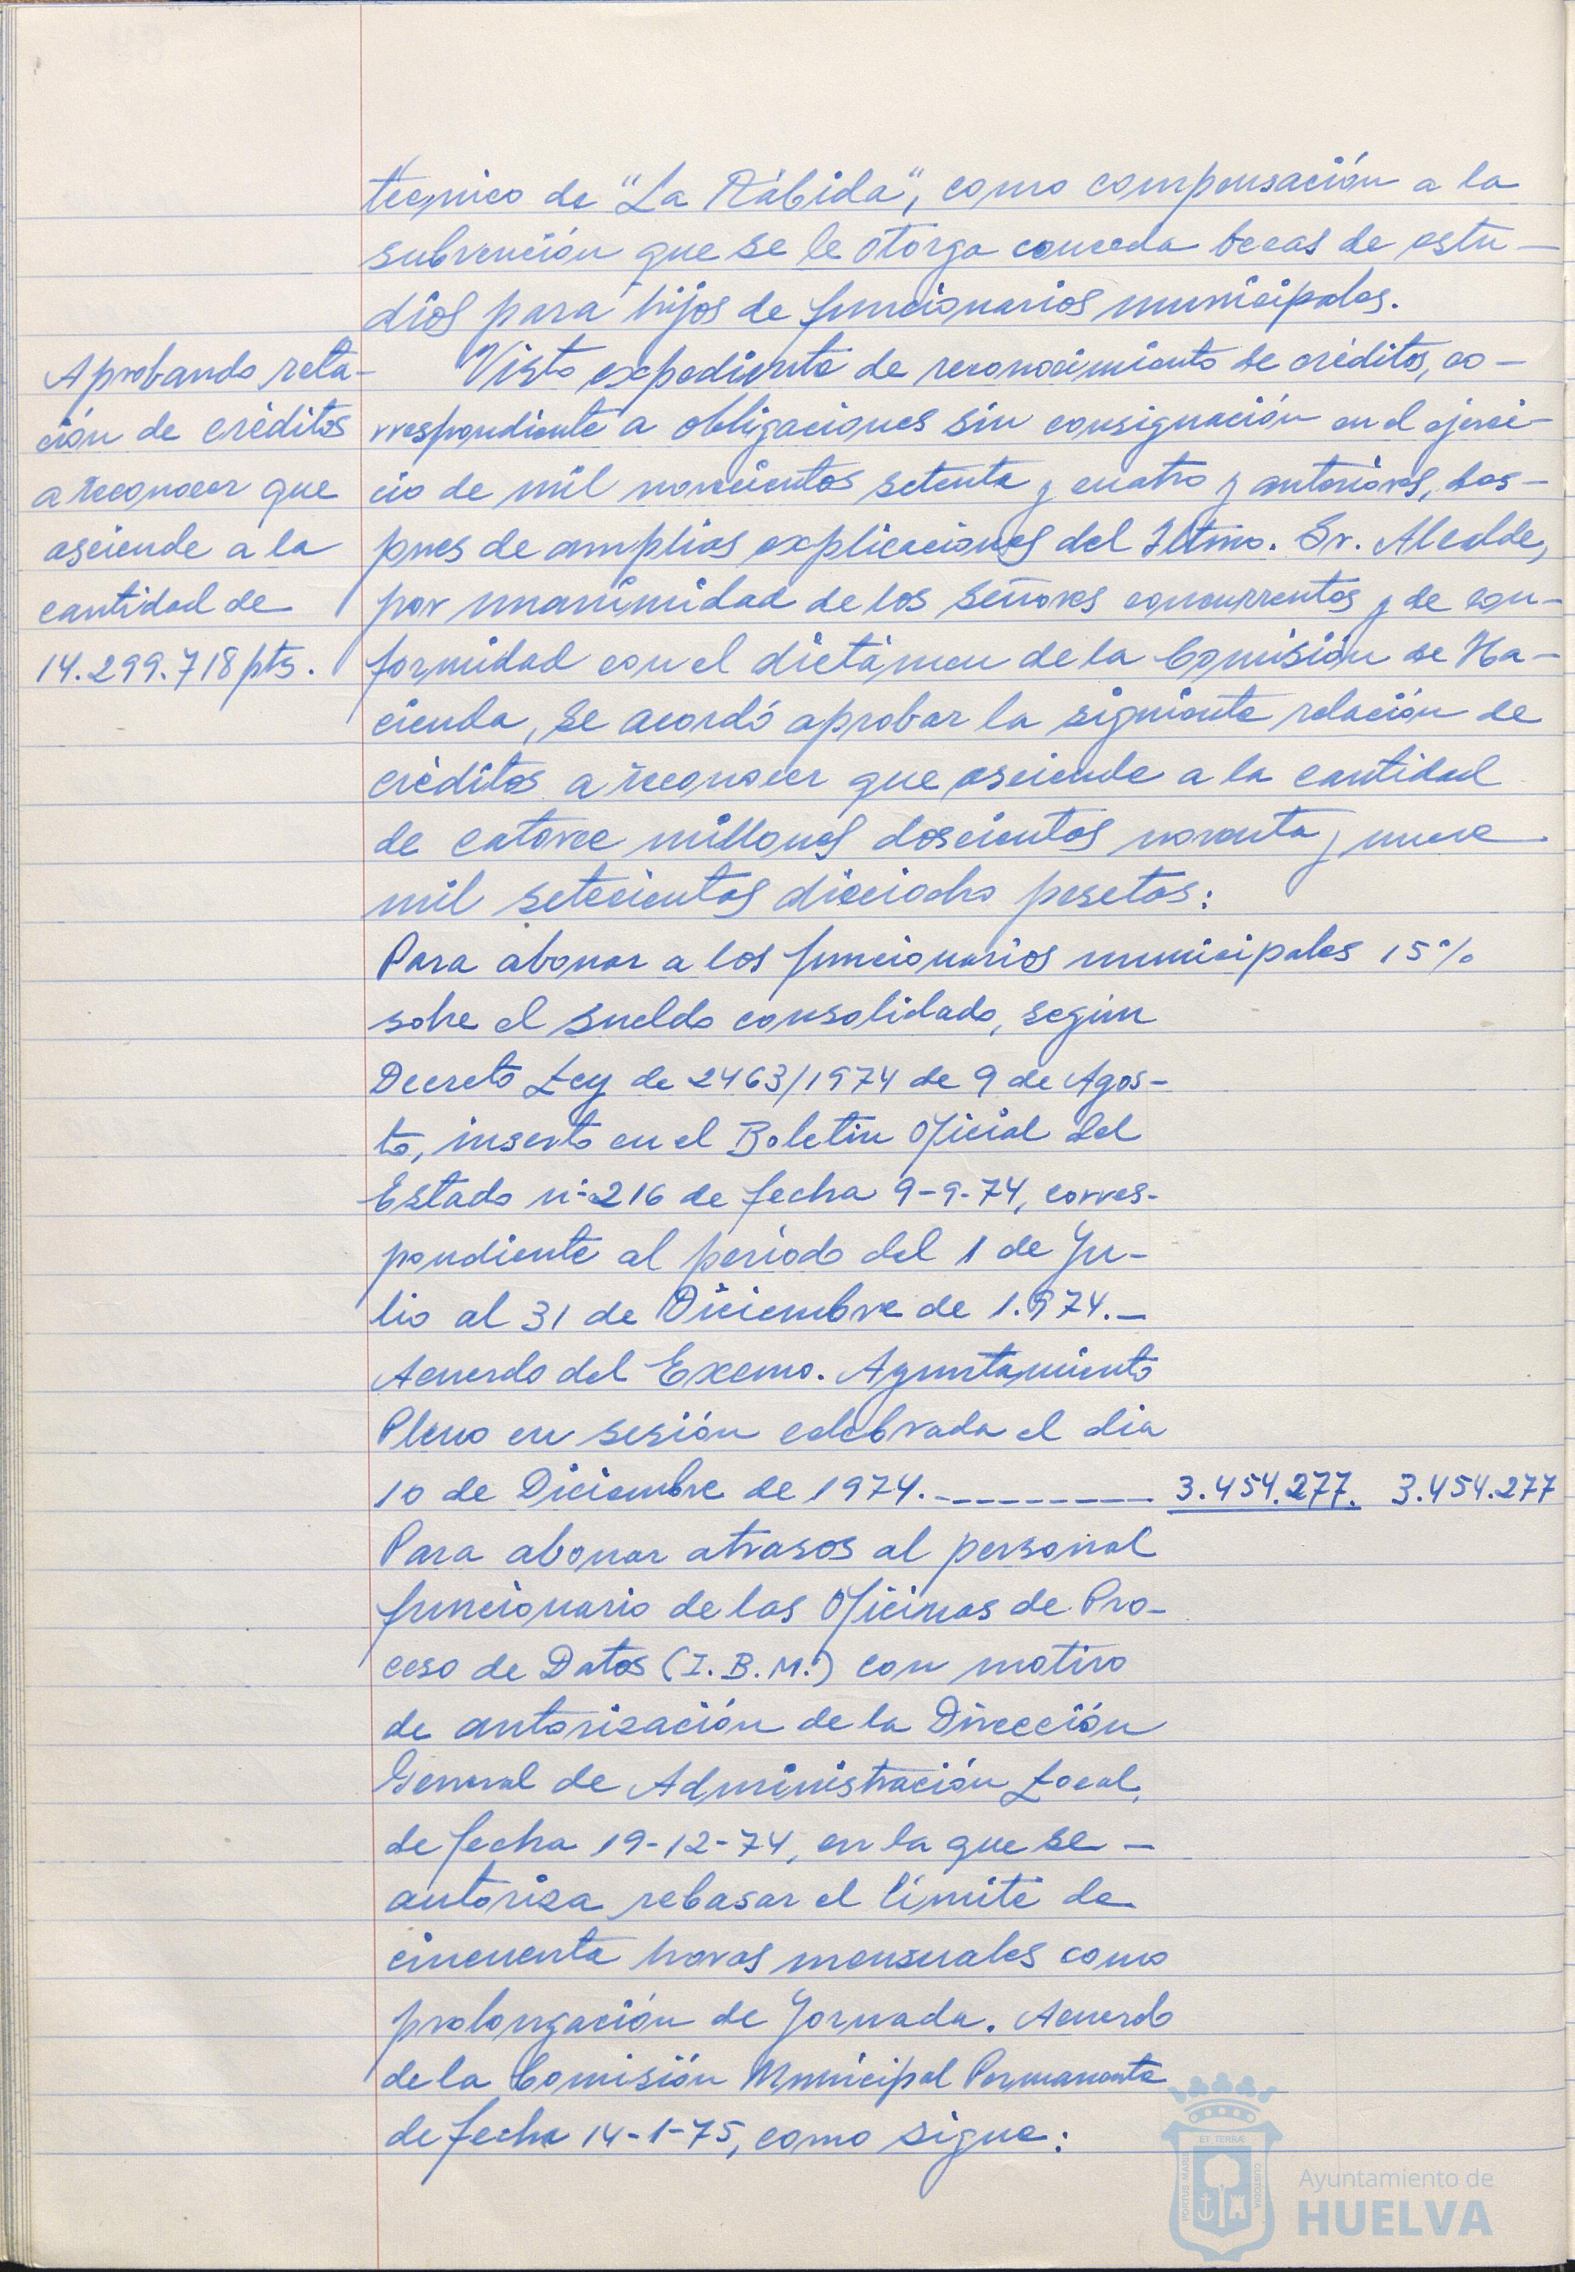 técnico de "La Rábida", como compensación a la
subvención que se le otorga conceda becas de estu-
dios para hijos de funcionarios municipales.
Aprobando rela-
ción de créditos
a reconocer que
asciende a la
cantidad de
14.299.718 pts.
Visto expediente de reconocimiento de créditos, co-
rrespondiente a obligaciones sin consignación en el ejerci-
cio de mil novecientos setenta y cuatro y anteriores, des-
pues de amplias explicaciones del Iltmo. Sr. Alcalde,
por unanimidad de los señores concurrentes y de con-
formidad con el dictámen de la Comisión de Ha-
cienda, se acordó aprobar la siguiente relación de
créditos a reconocer que asciende a la cantidad
de catorce millones doscientos noventa y nueve
mil setecientos dieciocho pesetas:
Para abonar a los funcionarios municipales 15%
sobre el sueldo consolidado, según
Decreto Ley de 2463/1974 de 9 de Agos-
to, inserto en el Boletin Oficial del
Estado nº 216 de fecha 9-9-74, corres-
pondiente al período del 1 de Ju-
lio al 31 de Diciembre de 1.974.-
Acuerdo del Excmo. Ayuntamiento
Pleno en sesión celebrada el dia
10 de Diciembre de 1974.--------- 3.454.277. 3.454.277
Para abonar atrasos al personal
funcionario de las Oficinas de Pro-
ceso de Datos (I.B.M.) con motivo
de autorización de la Dirección
General de Administración Local,
de fecha 19-12-74, en la que se -
autoriza rebasar el límite de
cincuenta horas mensuales como
prolongación de Jornada. Acuerdo
de la Comisión Municipal Permanente
de fecha 14-1-75, como sigue:
PORTUS MARIS
ET TERRÆ
CUSTODIA
Ayuntamiento de
HUELVA